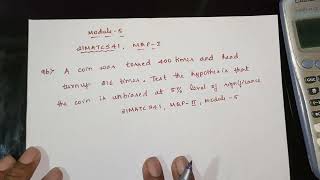 Module-5
21MATCS41, MQP-I
9b) A coin was tossed 400 times and head
turns up 216 times. Test the hypothesis that
the coin is unbiased at 5% level of significance
21MATCS41, MQP-II, Module-5